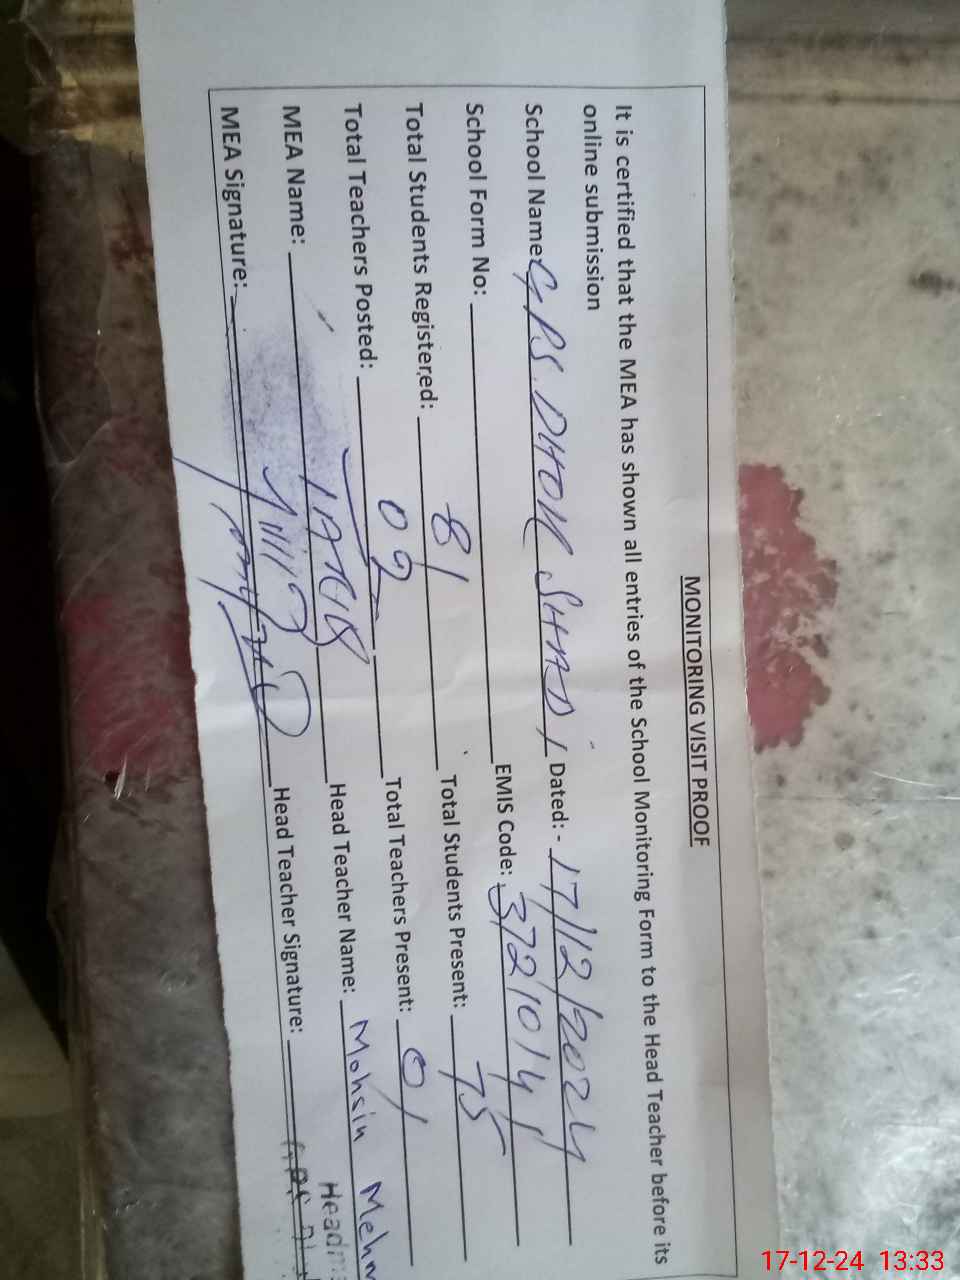 MONITORING VISIT PROOF
It is certified that the MEA has shown all entries of the School Monitoring Form to the Head Teacher before its
online submission
School Name: GPS. DHOK SHADI Dated:- 17/12/2024
School Form No: EMIS Code: 37210141
Total Students Registered: 81 Total Students Present: 75
Total Teachers Posted: 02 Total Teachers Present: 01
MEA Name: Head Teacher Name: Mohsin Mehm
MEA Signature: Head Teacher Signature:
Headm
17-12-24 13:33